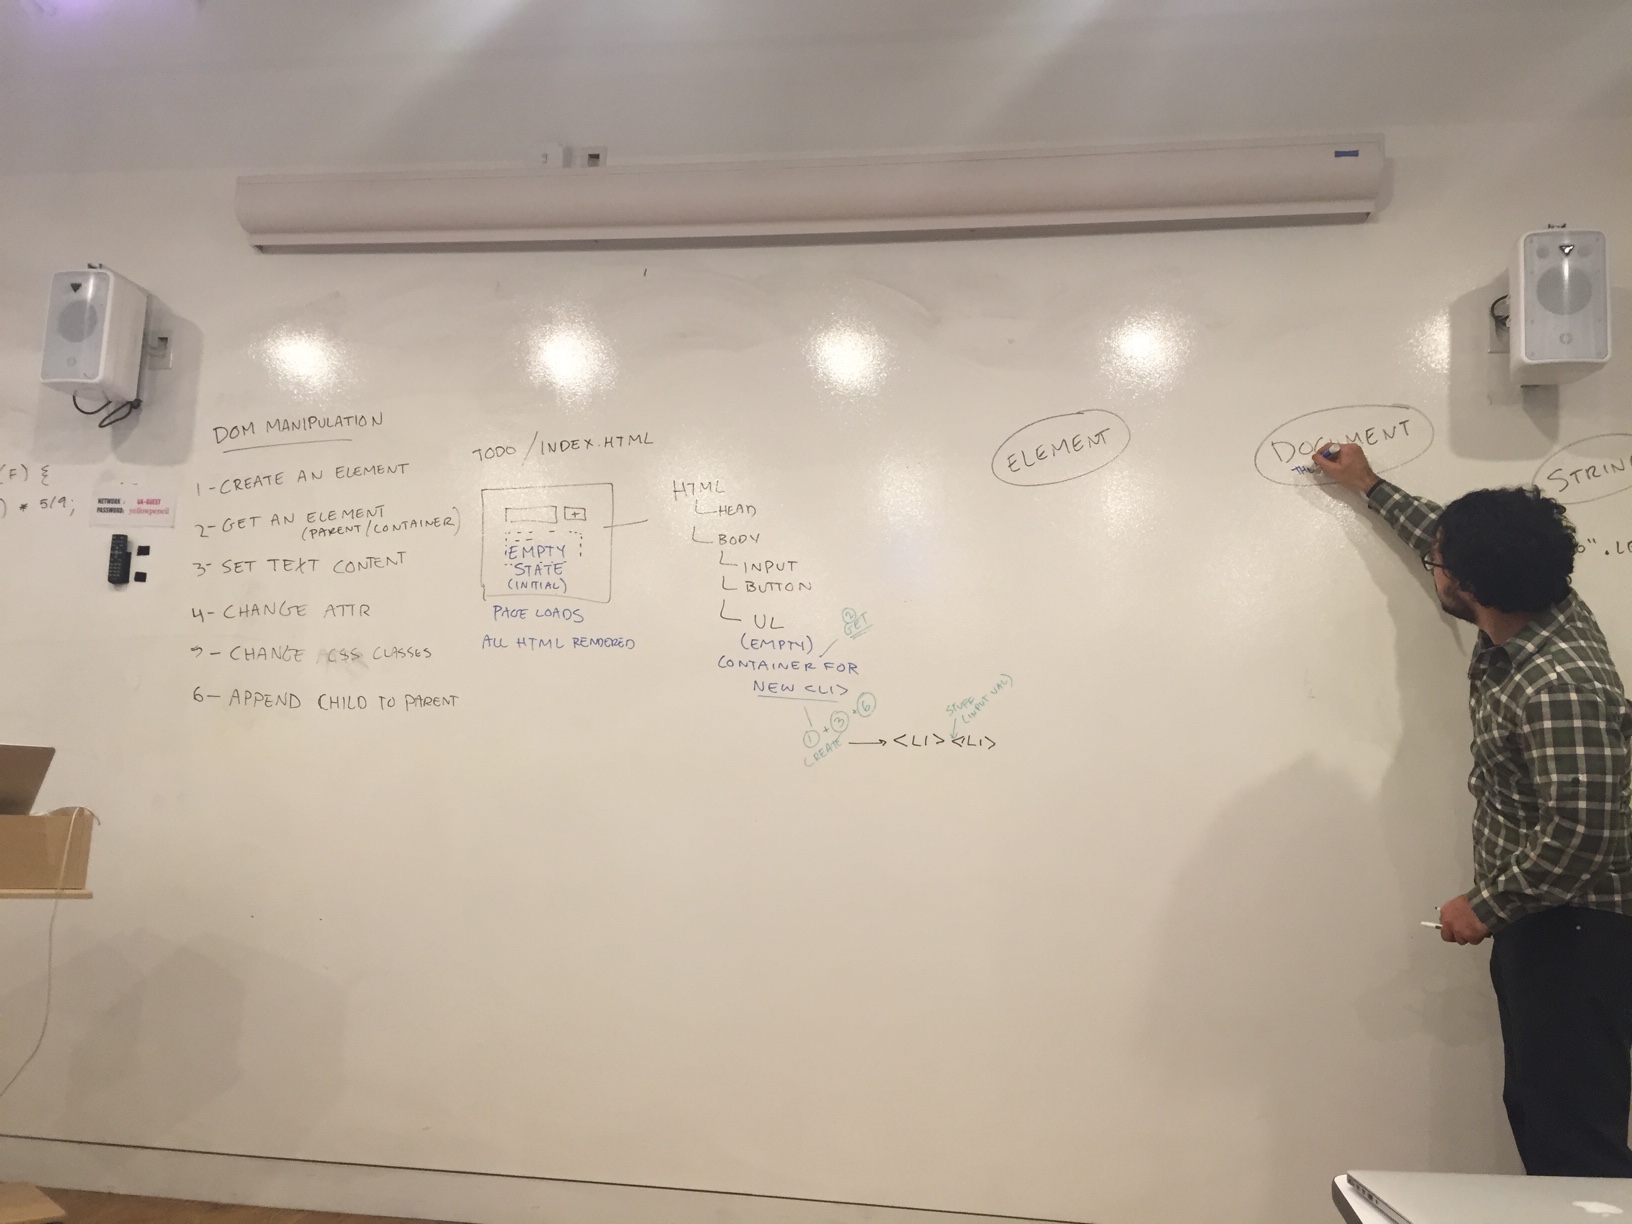 (F) {
) * 5/9;
NETWORK: GA-GUEST
PASSWORD: yellowpencil
DOM MANIPULATION
1 - CREATE AN ELEMENT
2 - GET AN ELEMENT
(PARENT/CONTAINER)
3 - SET TEXT CONTENT
4 - CHANGE ATTR
5 - CHANGE CSS CLASSES
6 - APPEND CHILD TO PARENT
TODO / INDEX.HTML
+
EMPTY
STATE
(INITIAL)
PAGE LOADS
ALL HTML RENDERED
HTML
HEAD
BODY
INPUT
BUTTON
UL
(EMPTY)
CONTAINER FOR
NEW <LI>
2
GET
1 + 3 + 6
CREATE → <LI> <LI>
STUFF
(INPUT VAL)
ELEMENT
DOCUMENT
STRIN
".LE